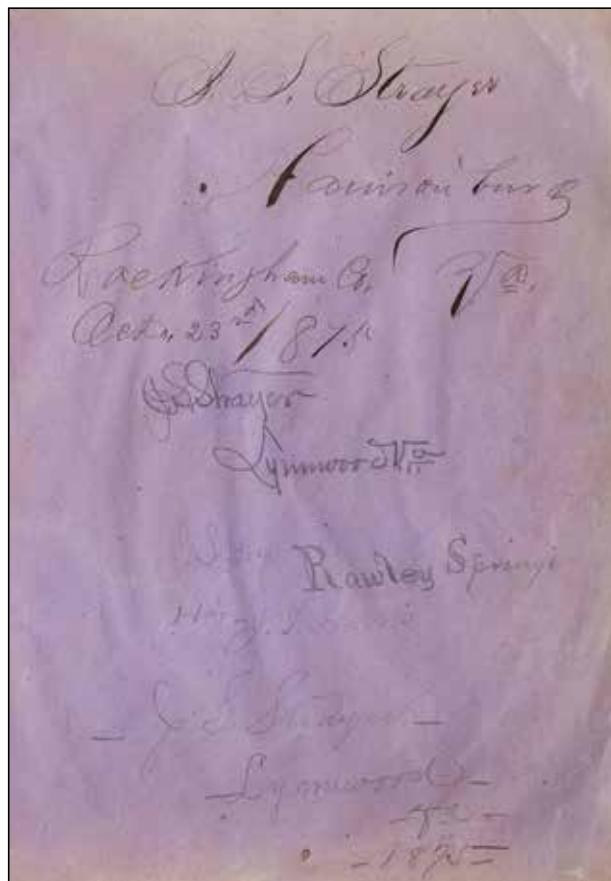 J. S. Strayer
Harrisonburg
Rockingham Co. Va.
Oct. 23rd / 1875
J. S. Strayer
Lynnwood Va
Rawley Springs
– J. S. Strayer –
– Lynnwood –
– Va –
– 1875 –